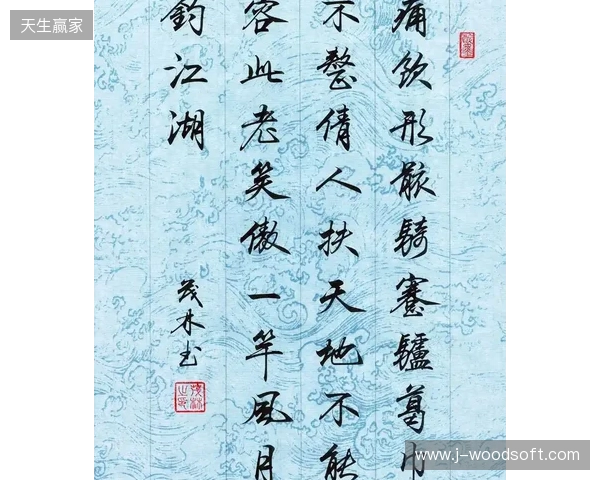 天生赢家
痛飲形骸騎蹇驢葛巾
不整倩人扶天地不能
容此老笑傲一竿風月
釣江湖
茂林书
www.j-woodsoft.com